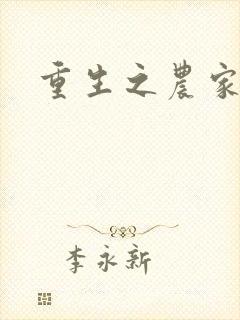 重生之農家
李永新